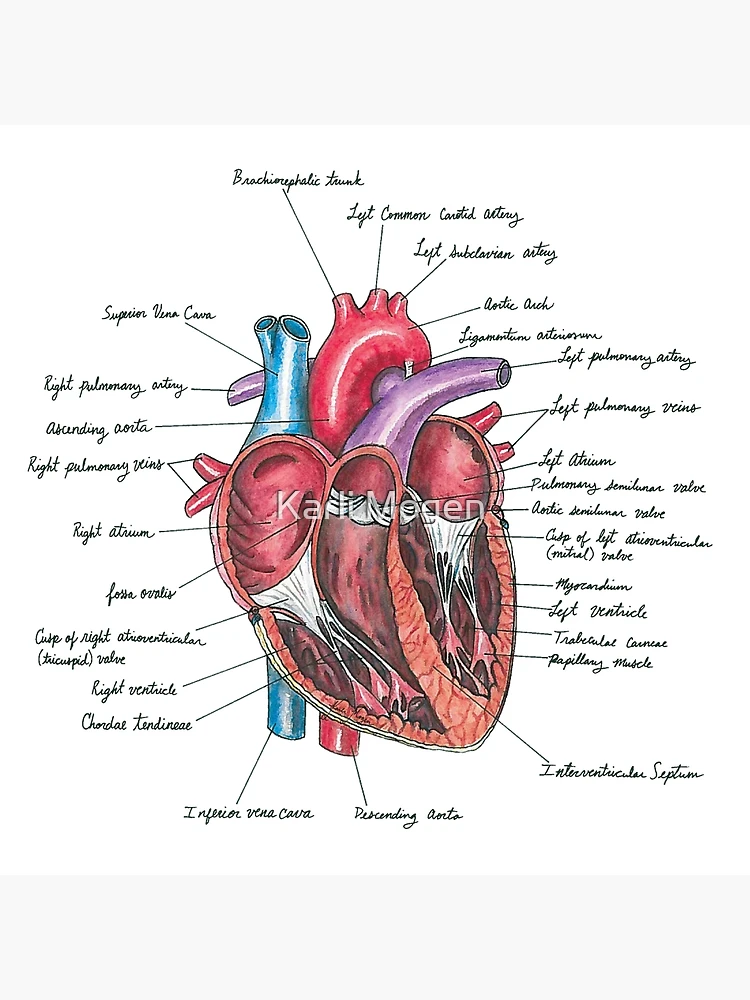 Brachiocephalic trunk
Left Common Carotid artery
Left subclavian artery
Aortic Arch
Superior Vena Cava
Ligamentum arteriosum
Left pulmonary artery
Right pulmonary artery
Left pulmonary veins
Ascending aorta
Right pulmonary veins
Left Atrium
Pulmonary semilunar valve
Karli Mogen
Aortic semilunar valve
Right atrium
Cusp of left atrioventricular
(mitral) valve
Myocardium
fossa ovalis
Left ventricle
Cusp of right atrioventricular
(tricuspid) valve
Trabeculae carneae
Papillary Muscle
Right ventricle
Chordae tendineae
Interventricular Septum
Inferior vena cava
Descending Aorta